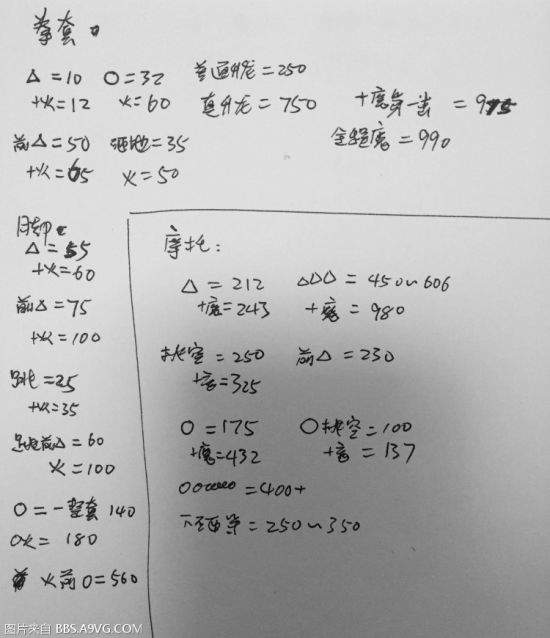 拳套
△=10 O=32 普通升龙=250
+火=12 火=60 真升龙=750 +魔第一章=975
前△=50 砸地=35 全程魔=990
+火=65 火=50
△=55
+火=60
前△=75
+火=100
跳=25
+火=35
跳前△=60
火=100
O=一整套 140
O火=180
火前O=560
摩托:
△=212 △△△=450~606
+魔=243 +魔=980
挑空=250 前△=230
+魔=325
O=175 O挑空=100
+魔=432 +魔=137
=400+
=250~350
图片来自 BBS.A9VG.COM